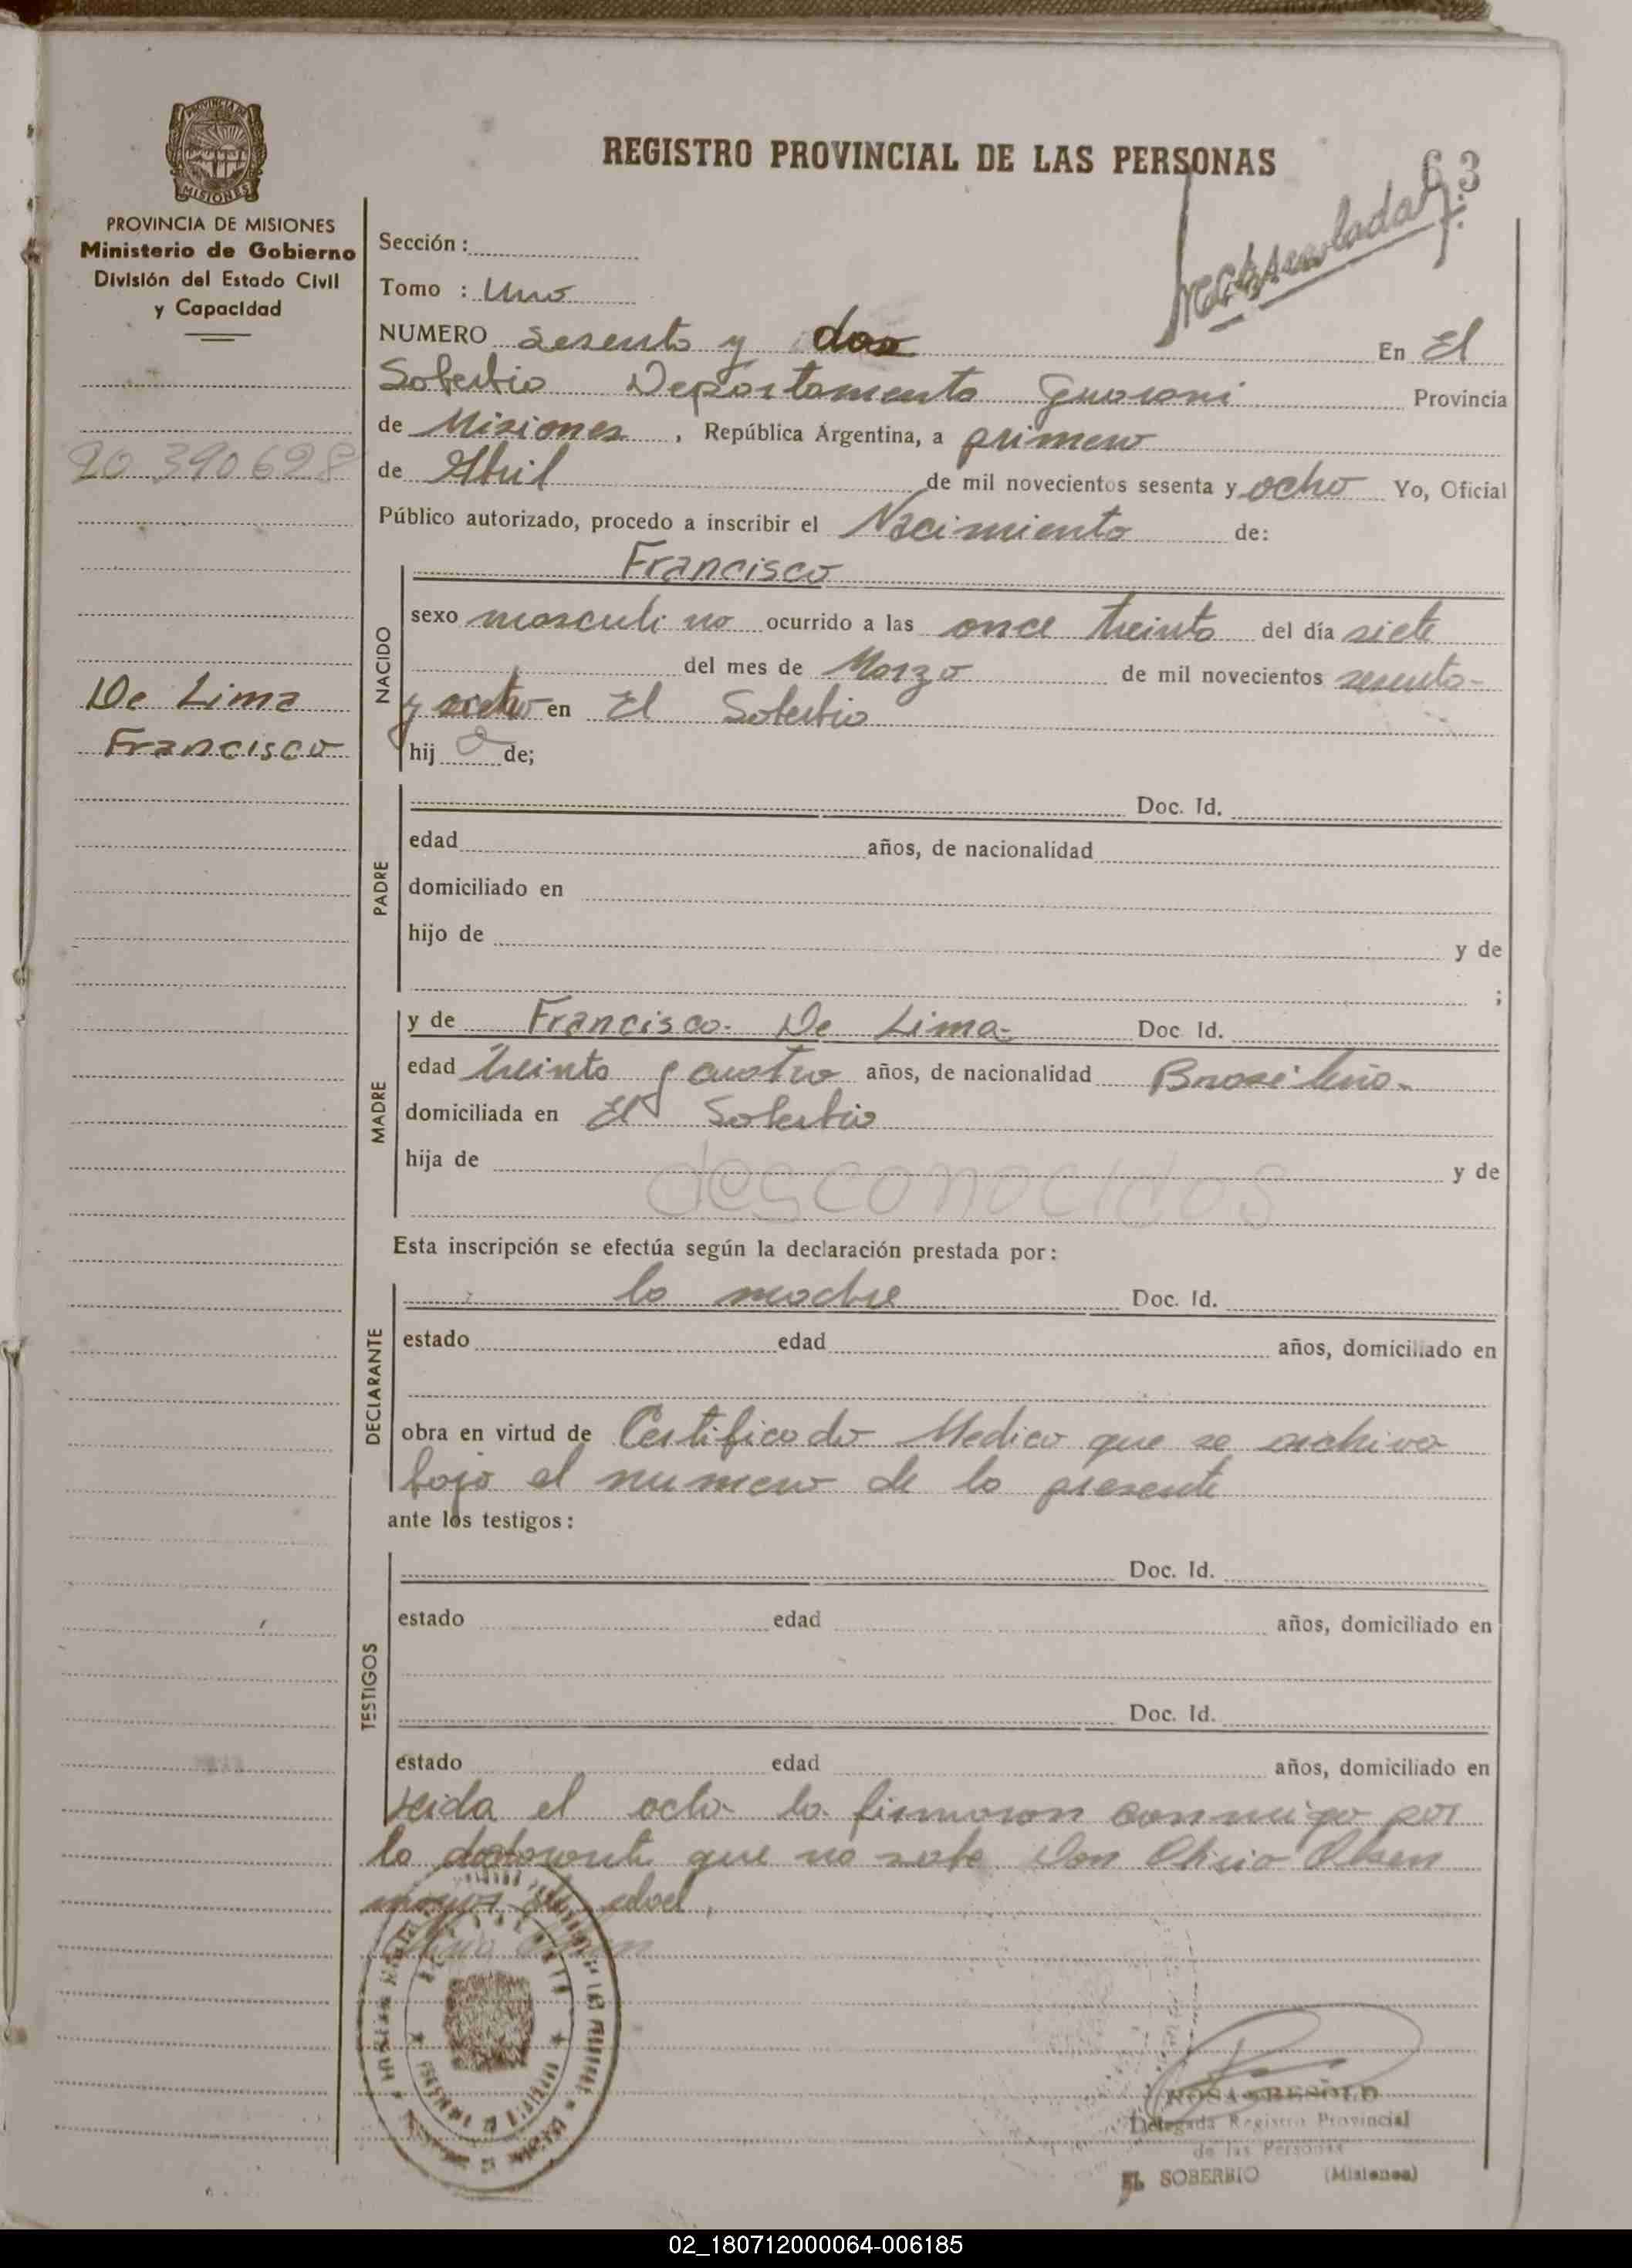 PROVINCIA DE
MISIONES
PROVINCIA DE MISIONES
Ministerio de Gobierno
División del Estado Civil
y Capacidad
REGISTRO PROVINCIAL DE LAS PERSONAS
63
Sección :
Tomo : Uno
NUMERO sesenta y dos En El
Soberbio Departamento Guarani Provincia
de Misiones , República Argentina, a primero
20 390 628
de Abril de mil novecientos sesenta y ocho Yo, Oficial
Público autorizado, procedo a inscribir el Nacimiento de:
NACIDO
Francisco
sexo masculino ocurrido a las once treinta del día siete
del mes de Marzo de mil novecientos sesenta-
y ocho en El Soberbio
hij o de;
De Lima
Francisco
PADRE
Doc. Id.
edad años, de nacionalidad
domiciliado en
hijo de y de
;
MADRE
y de Francisca De Lima- Doc Id.
edad treinta y cuatro años, de nacionalidad Brasileña-
domiciliada en El Soberbio
hija de desconocidos y de
Esta inscripción se efectúa según la declaración prestada por:
DECLARANTE
la madre Doc. Id.
estado edad años, domiciliado en
obra en virtud de Certificado Medico que se archiva
bajo el numero de la presente
ante los testigos:
TESTIGOS
Doc. Id.
estado edad años, domiciliado en
Doc. Id.
estado edad años, domiciliado en
Leida el acta la firmaron conmigo por
la declarante que no sabe Don Olivio Olsen
mayor de edad,
ROSA
Delegada Registro Provincial
de las Personas
EL SOBERBIO (Misiones)
02_180712000064-006185